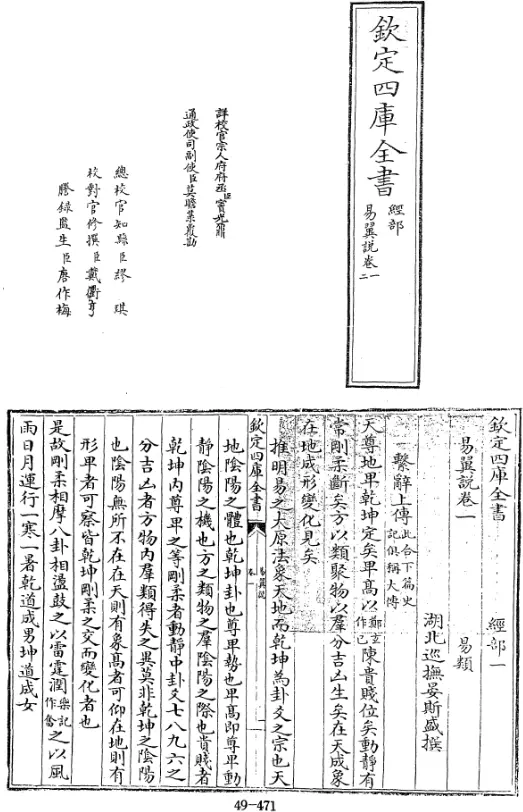 欽定四庫全書
經部
易翼說卷一二
詳校官宗人府府丞臣竇光鼐
通政使司副使臣莫瞻菉覆勘
總校官知縣臣繆琪
校對官修撰臣戴衢亨
謄錄監生臣唐作梅
欽定四庫全書
經部一
易翼說卷一
易類
湖北巡撫晏斯盛撰
繫辭上傳此合下篇史記俱稱大傳
天尊地卑乾坤定矣卑高以鄭玄作已陳貴賤位矣動靜有
常剛柔斷矣方以類聚物以羣分吉凶生矣在天成象
在地成形變化見矣
推明易之大原法象天地而乾坤為卦爻之宗也天
欽定四庫全書
易翼說
卷一
一
地陰陽之體也乾坤卦也尊卑勢也卑高即尊卑動
靜陰陽之機也方之類物之羣陰陽之際也貴賤者
乾坤內尊卑之等剛柔者動靜中卦爻七八九六之
分吉凶者方物內羣類得失之異莫非乾坤之陰陽
也陰陽無所不在在天則有象髙者可仰在地則有
形卑者可察皆乾坤剛柔之交而變化者也
是故剛柔相摩八卦相盪鼓之以雷霆潤樂記作奮之以風
雨日月運行一寒一暑乾道成男坤道成女
49-471